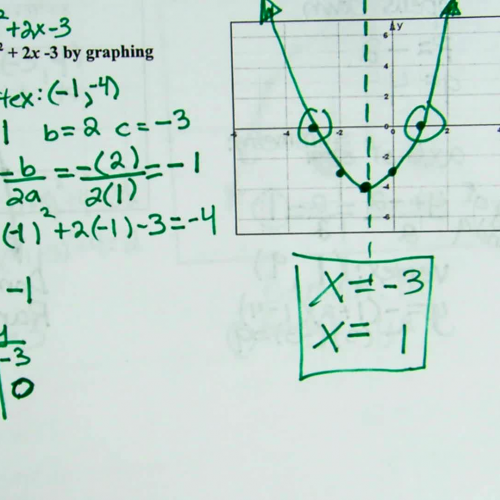 ² + 2x - 3
² + 2x -3 by graphing
tex: (-1, -4)
1 b = 2 c = -3
-b/2a = -(2)/2(1) = -1
(-1)² + 2(-1) - 3 = -4
-1
-3
0
y
6
4
2
-2
0
2
-2
-4
-6
x = -3
x = 1